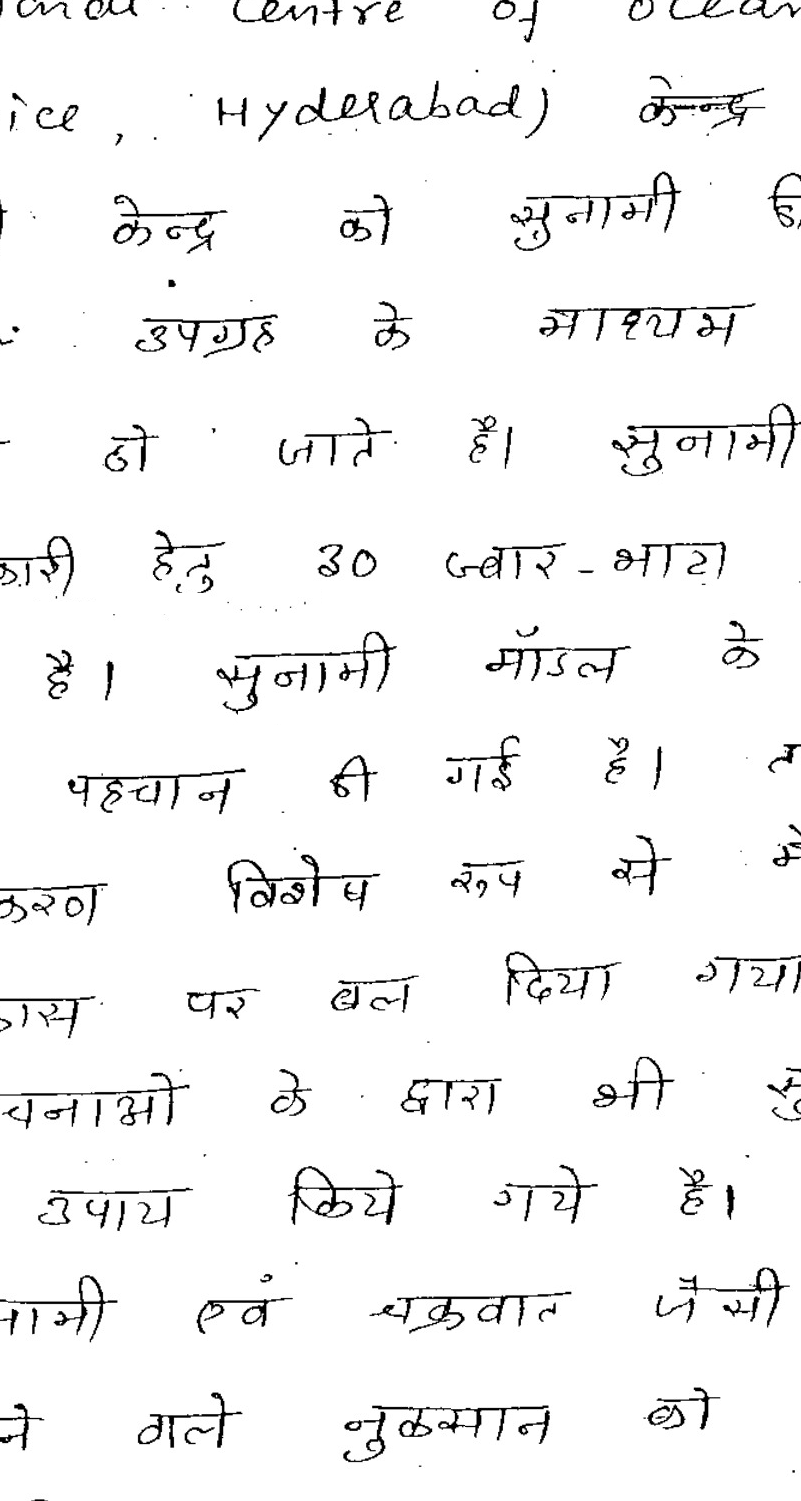 Centre of Ocean
ice, Hyderabad) केन्द्र
केन्द्र को सुनामी
उपग्रह के माध्यम
हो जाते है। सुनामी
कारी हेतु 30 ज्वार-भाटा
है। सुनामी मॉडल के
पहचान की गई है।
करण विशेष रूप से मे
पर बल दिया गया
चनाओं के द्वारा भी सु
उपाय किये गये है।
नामी एवं चक्रवात जैसी
ने वाले नुकसान को